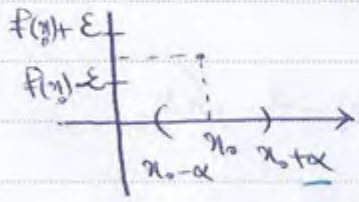 f(x₀)+ε
f(x₀)-ε
x₀-α x₀ x₀+α